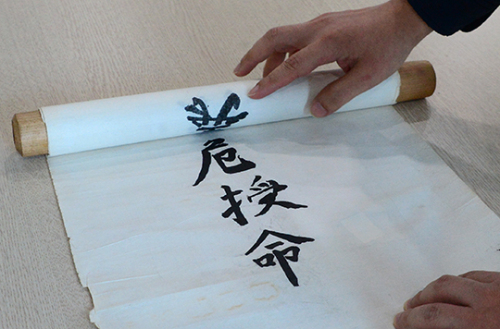 危授命